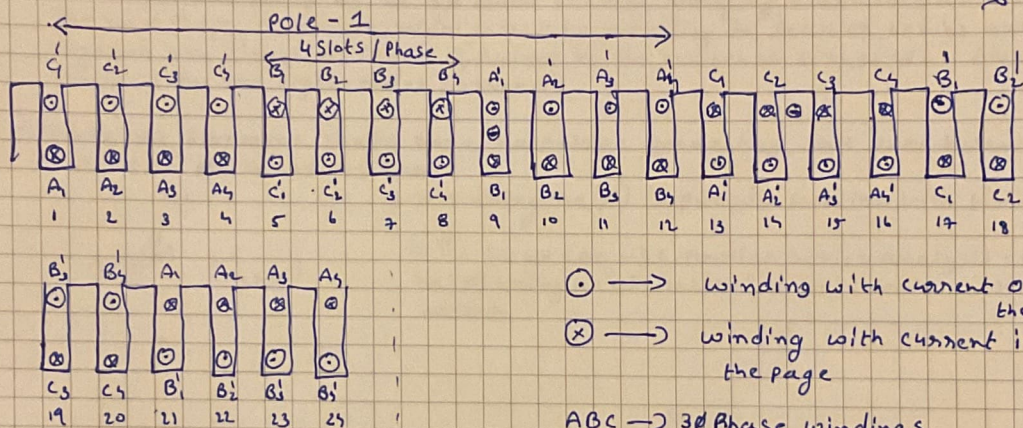 Pole - 1
4 Slots / Phase
C₁' C₂' C₃' C₄' B₁ B₂ B₃ B₄ A₁' A₂' A₃' A₄' C₁ C₂ C₃ C₄ B₁' B₂'
A₁ A₂ A₃ A₄ C₁' C₂' C₃' C₄' B₁ B₂ B₃ B₄ A₁' A₂' A₃' A₄' C₁ C₂
1 2 3 4 5 6 7 8 9 10 11 12 13 14 15 16 17 18
B₃' B₄' A₁ A₂ A₃ A₄
C₃ C₄ B₁' B₂' B₃' B₄'
19 20 21 22 23 24
⊙ → winding with current
⊗ → winding with current
the page
ABC → 3Ø Phase windings